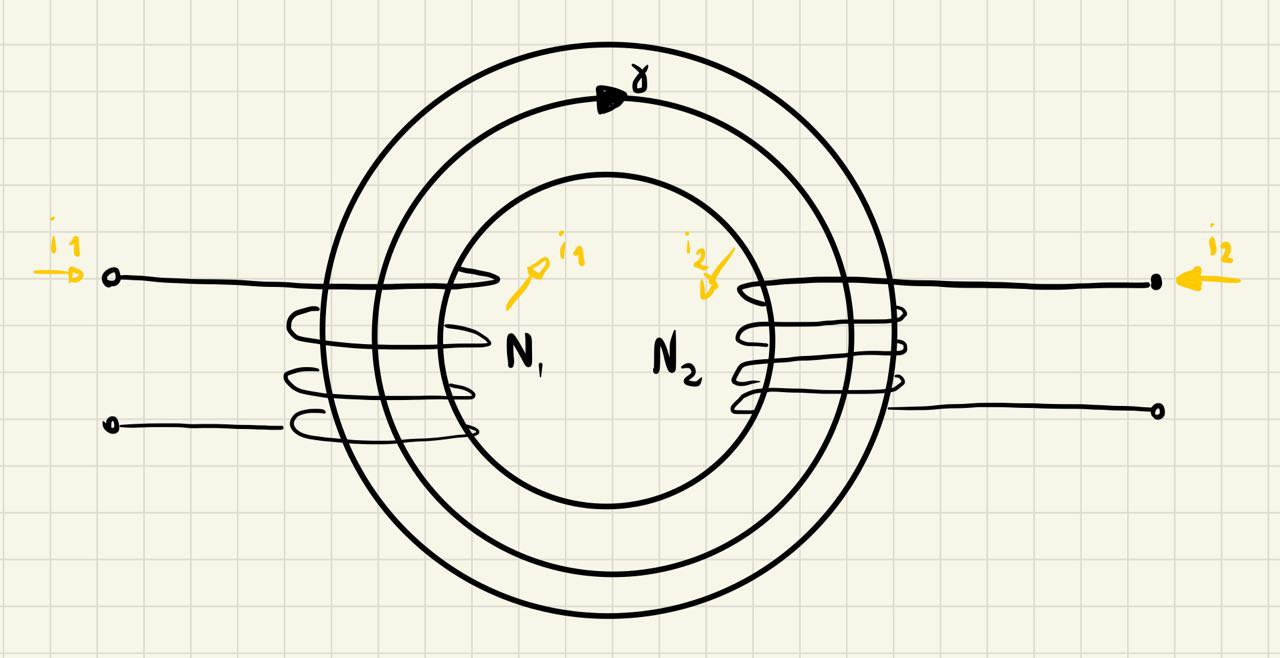 γ
i1
i1
i2
i2
N1
N2